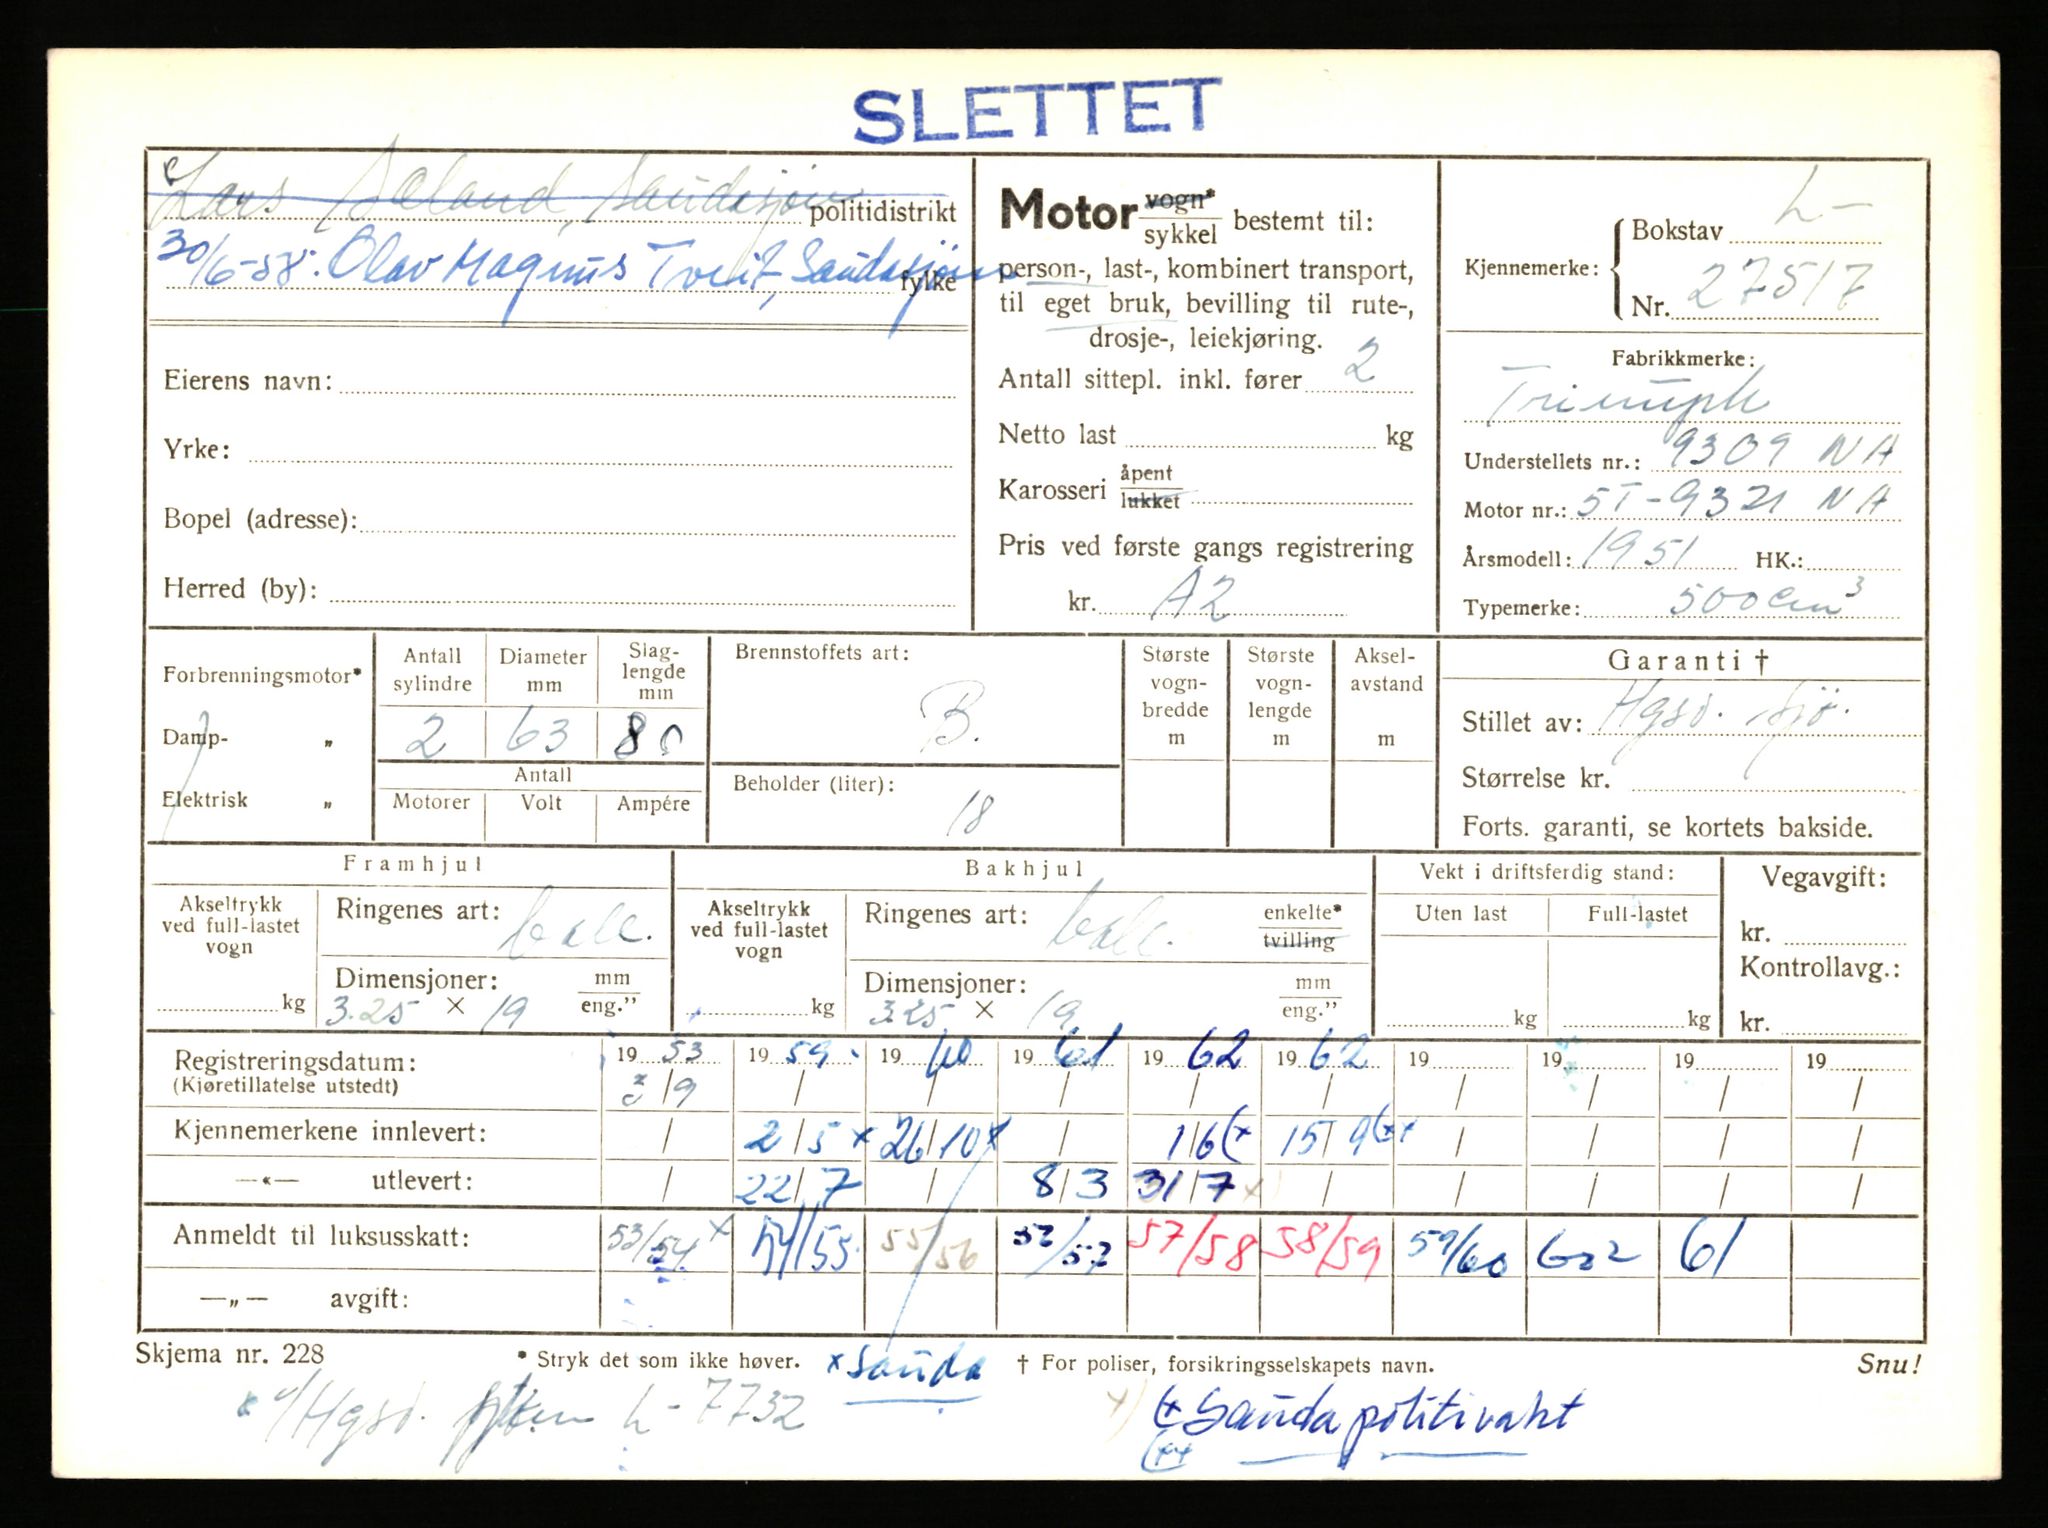 SLETTET
Lars Sæland, Saudasjøen politidistrikt
30/6-58. Olav Magnus Tveit, Saudasjøen fylke
Eierens navn:
Yrke:
Bopel (adresse):
Herred (by):
Motor vogn* / sykkel bestemt til:
person-, last-, kombinert transport,
til eget bruk, bevilling til rute-,
drosje-, leiekjøring.
Antall sittepl. inkl. fører 2
Netto last kg
Karosseri åpent / lukket
Pris ved første gangs registrering
kr. A2
Kjennemerke: Bokstav L-
Nr. 27517
Fabrikkmerke:
Triumph
Understellets nr.: 9309 NA
Motor nr.: 5T-9321 NA
Årsmodell: 1951 HK.:
Typemerke: 500 cm³
Forbrenningsmotor*
Damp- „
Elektrisk „
Antall sylindre 2
Diameter mm 63
Slaglengde mm 80
Antall
Motorer Volt Ampére
Brennstoffets art:
B.
Beholder (liter):
18
Største vogn-bredde m
Største vogn-lengde m
Aksel-avstand m
Garanti †
Stillet av: Hgsd. Sjø.
Størrelse kr.
Forts. garanti, se kortets bakside.
Framhjul
Akseltrykk ved full-lastet vogn kg
Ringenes art:
Dimensjoner: mm / eng.”
3.25 × 19
Bakhjul
Akseltrykk ved full-lastet vogn kg
Ringenes art: enkelte* / tvilling
Dimensjoner: mm / eng.”
3.25 × 19
Vekt i driftsferdig stand:
Uten last Full-lastet
kg kg
Vegavgift:
kr.
Kontrollavg.:
kr.
Registreringsdatum: 19 53 19 59 19 60 19 61 19 62 19 62 19 19 19 19
(Kjøretillatelse utstedt) 3/9 / / / / / / / / /
Kjennemerkene innlevert: / 2/5 x 26/10 x / 1/6 (x 15/9 (xx / / / /
—«— utlevert: / 22/7 / 8/3 31/7 x) / / / / /
Anmeldt til luksusskatt: 53/54 x 54/55 55/56 57/58 58/59 59/60 61
—„— avgift:
Skjema nr. 228 * Stryk det som ikke høver. x Sauda † For poliser, forsikringsselskapets navn. Snu!
Hgsd. L-7732
x) (x Sauda politivakt
(xx